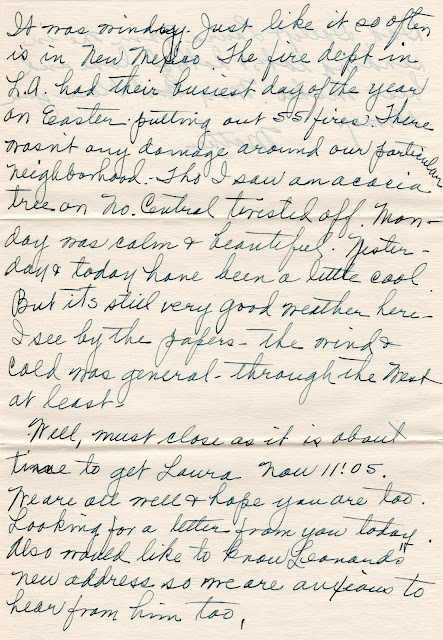 It was windy. Just like it so often
is in New Mexico. The fire dept in
L.A. had their busiest day of the year
on Easter putting out 551 fires. There
wasn't any damage around our particular
neighborhood - Tho I saw an acacia
tree on No. Central twisted off. Mon-
day was calm & beautiful. Yester-
day & today have been a little cool
But its still very good weather here -
I see by the papers - the wind &
cold was general - through the West
at least -
Well, must close as it is about
time to get Laura now 11:05.
We are all well & hope you are too.
Looking for a letter from you today.
Also would like to know Leonards
new address so we are anxious to
hear from him too,